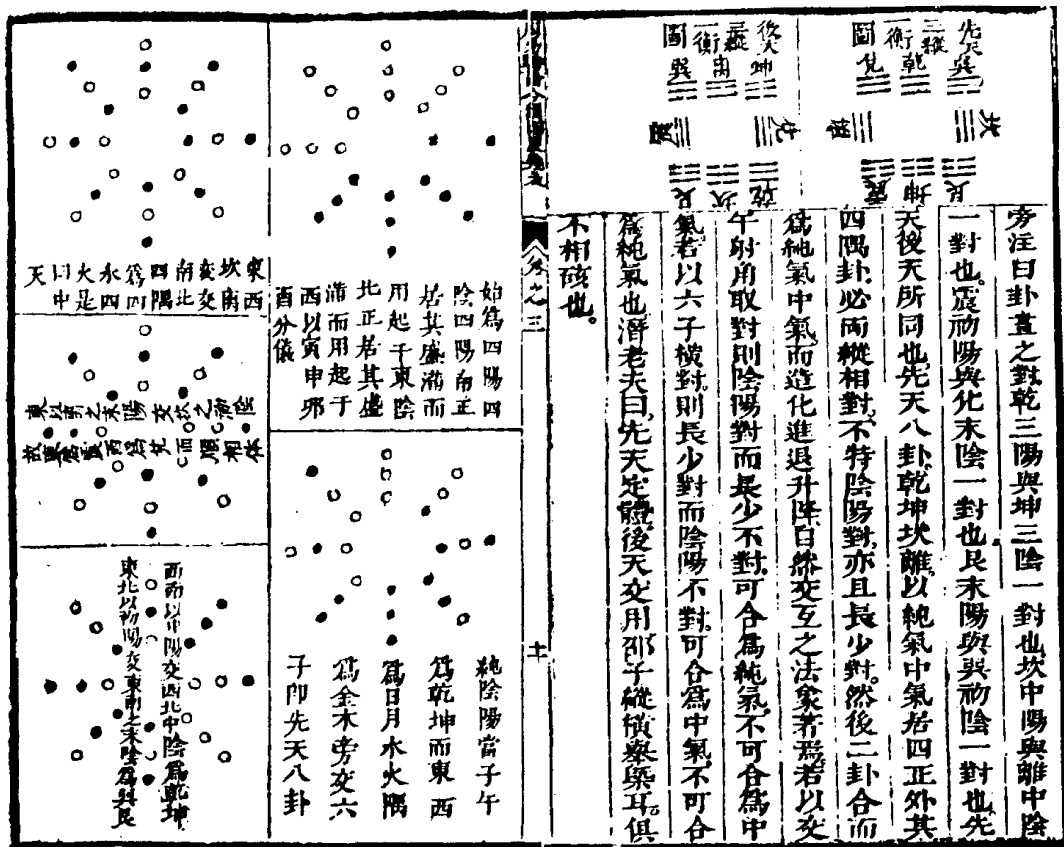 先天巽
三縱乾
一衡
圖兌
坎
離
艮
坤
震
後天坤
三縱離
一衡
圖巽
兌
震
乾
坎
艮
旁注曰卦畫之對乾三陽與坤三陰一對也坎中陽與離中陰
一對也震初陽與兌末陰一對也艮末陽與巽初陰一對也先
天後天所同也先天八卦乾坤坎離以純氣中氣居四正外其
四隅卦必兩縱相對不特陰陽對亦且長少對然後二卦合而
爲純氣中氣而造化進退升降自然交互之法象著焉若以交
午射角取對則陰陽對而長少不對可合爲純氣不可合爲中
氣若以六子橫對則長少對而陰陽不對可合爲中氣不可合
爲純氣也潛老夫曰先天定體後天交用邵子縱橫舉槩耳俱
不相硋也
卷之三
十
始爲四陽四
陰四陽南正
居其盛滿而
用起于東陰
北正居其盛
滿而用起于
西以寅申卯
酉分儀
純陰陽當子午
爲乾坤而東西
爲日月水火隅
爲金木旁交六
子卽先天八卦
東西
坎離
交
南北
四隅
爲四
水四
火是
曰中
天
陰
之
坎
交
陽
末之
南
以
東
相
而
兌
爲
西
震
居
故
西南以中陽交西北中陰爲乾坤
東北以初陽交東南之末陰爲巽艮